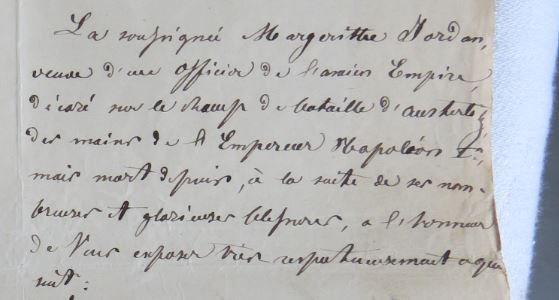 La soussignée Margueritte Jordan,
veuve d'un officier de l'ancien Empire,
décoré sur le champ de bataille d'Austerlitz
des mains de l'Empereur Napoléon 1er,
mais mort depuis, à la suite de ses nom-
breuses et glorieuses blessures, a l'honneur
de Vous exposer très respectueusement ce qui
suit: